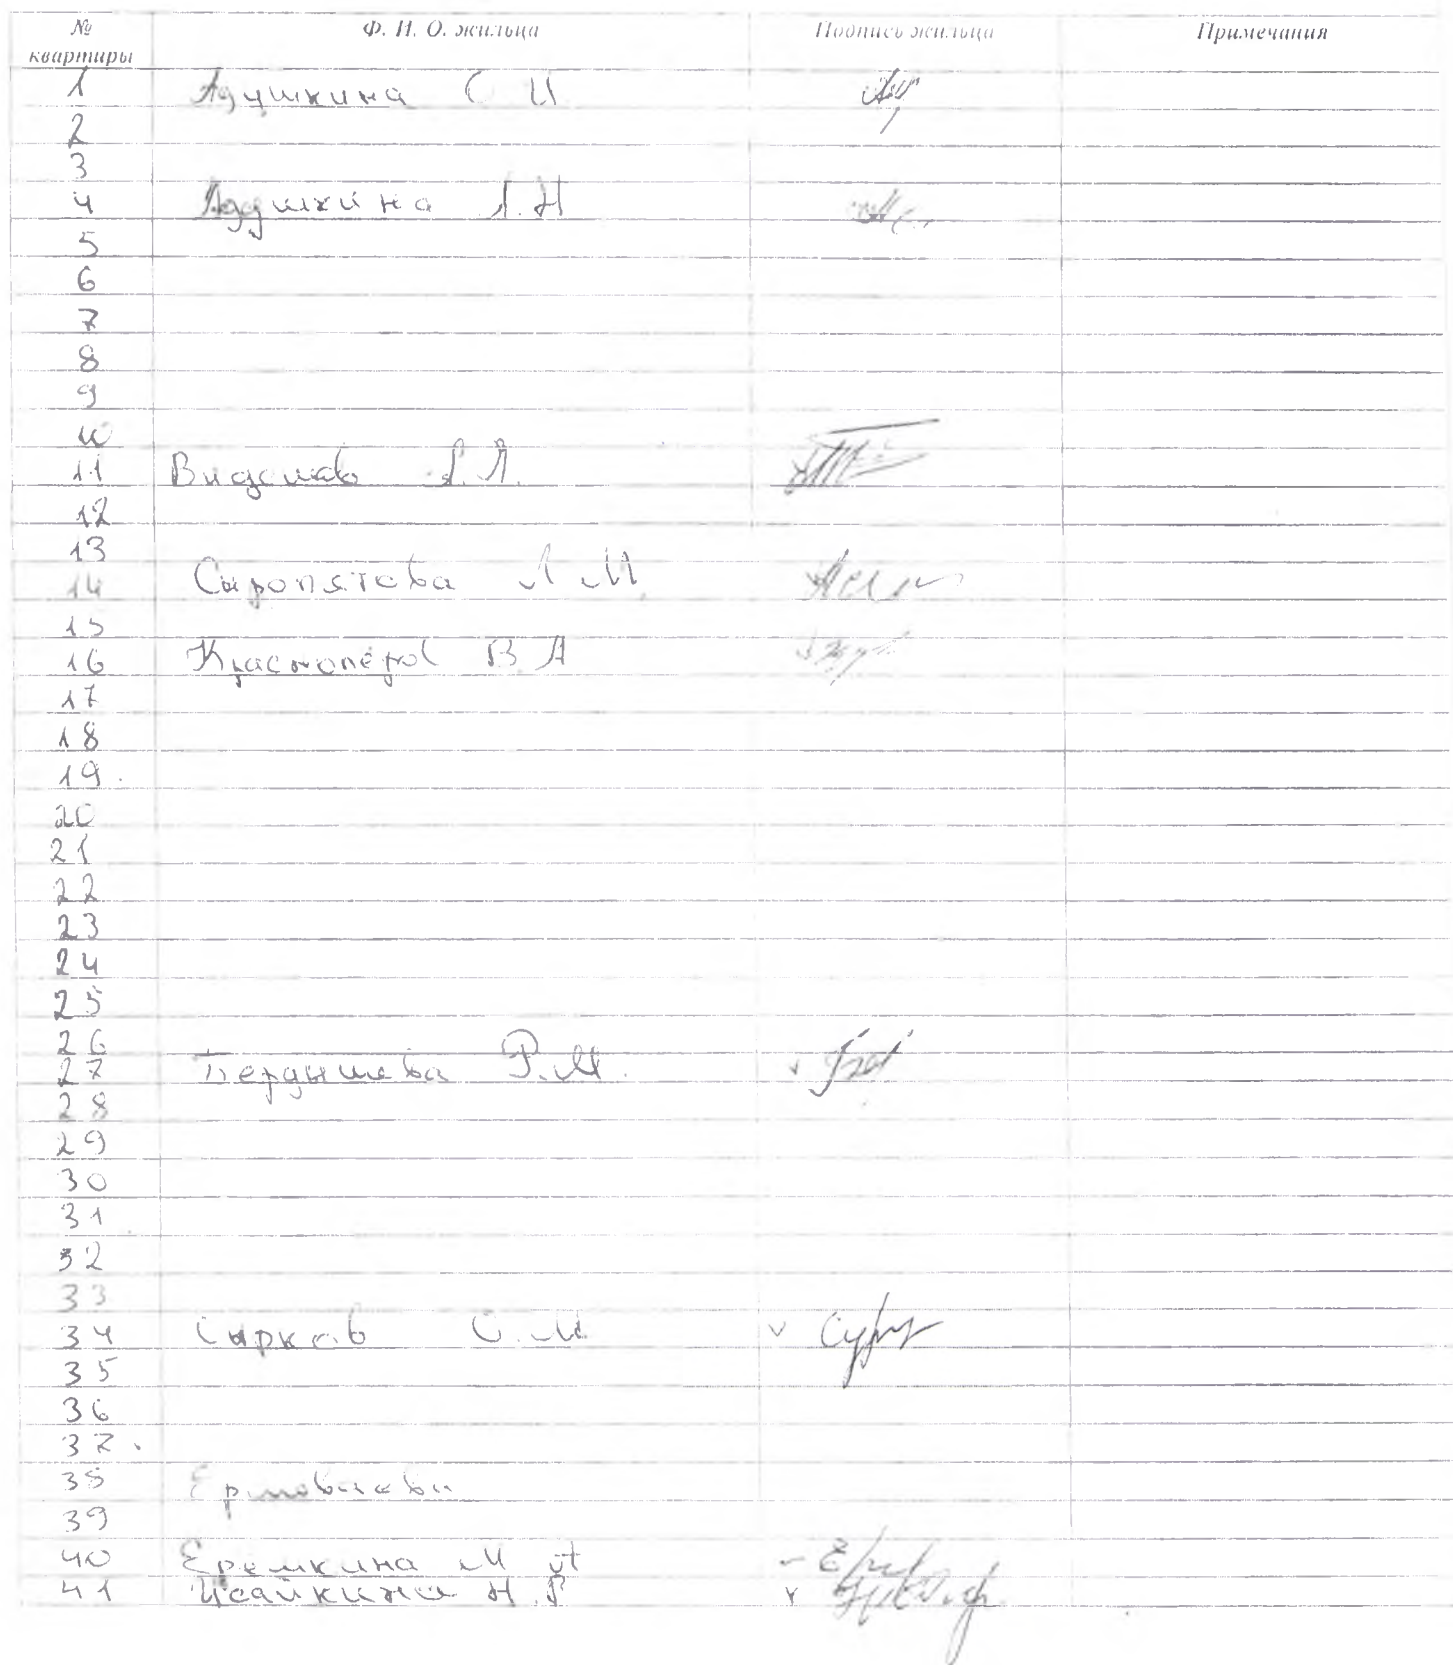 № квартиры Ф. И. О. жильца Подпись жильца Примечания
1 Адушкина С И
2
3
4 Адушкина Л.Н
5
6
7
8
9
10
11 Л.
12
13
14 Сыропятова Л М
15
16 Краснопёров В А
17
18
19.
20
21
22
23
24
25
26
27 Бердышева Р.М.
28
29
30
31
32
33
34 Сырков О.М
35
36
37.
38
39
40 Еремкина М
41 Исайкина Н.